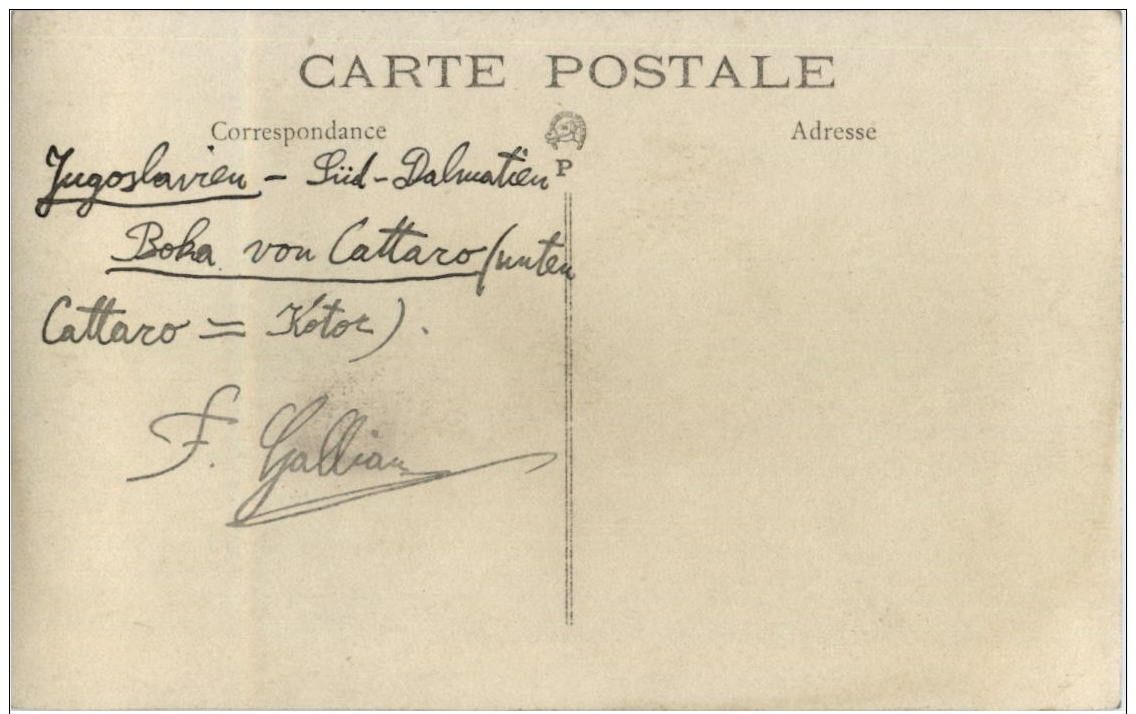 CARTE POSTALE
Correspondance
Adresse
P
Jugoslavien - Süd-Dalmatien
Boka von Cattaro (unten
Cattaro = Kotor).
F. Gallian